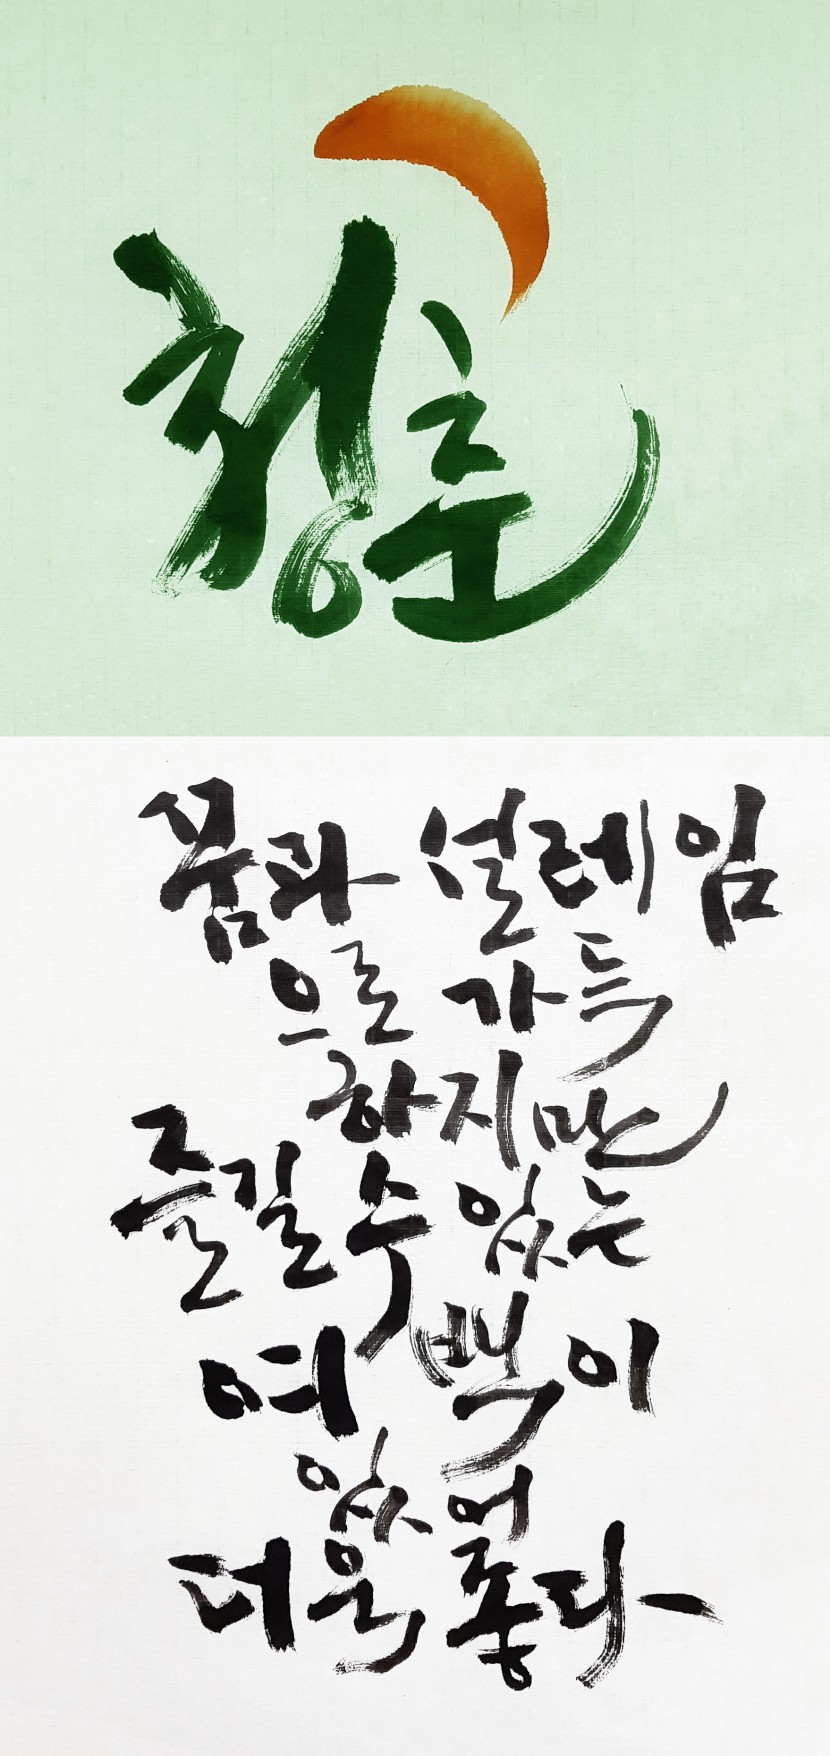 청춘
꿈과 설레임
으로 가득
하지만
즐길 수 있는
여백이
있어
더욱 좋다